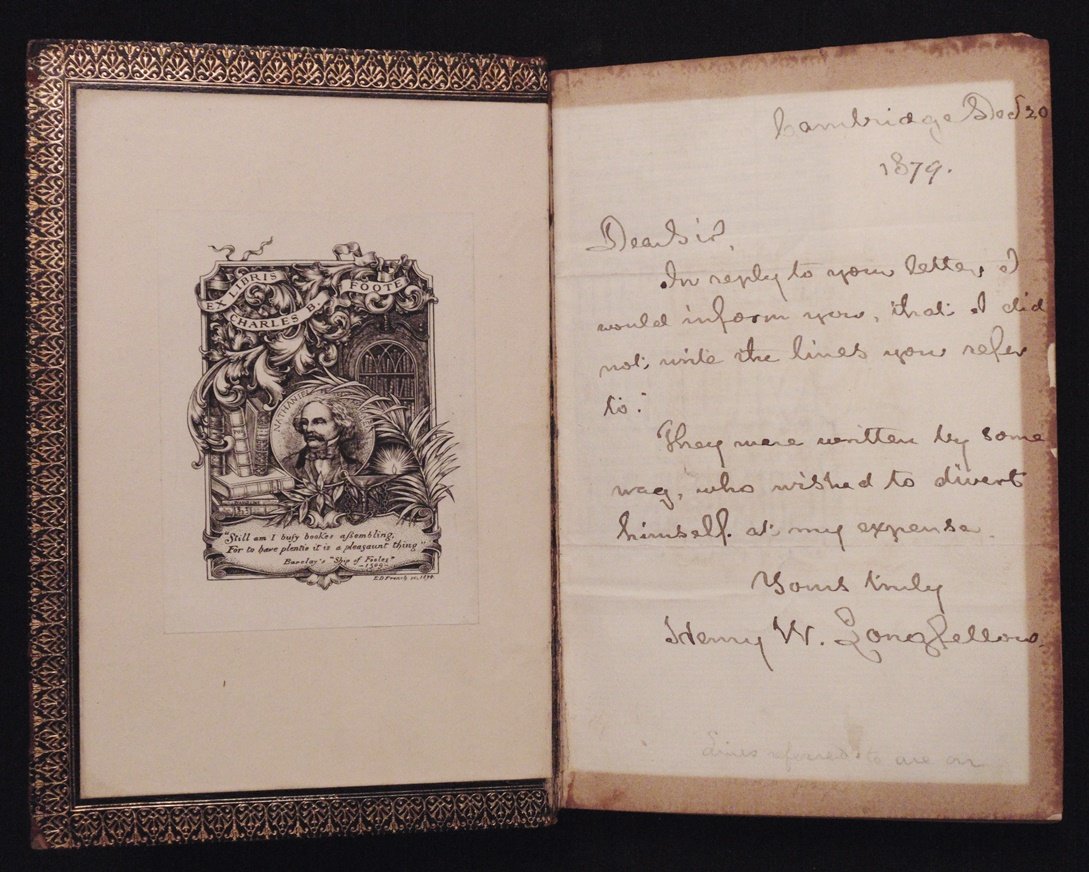 EX LIBRIS
CHARLES B. FOOTE
NATHANIEL
"Still am I busy bookes assembling,
For to have plentie it is a pleasaunt thing"
Barclay's "Ship of Fooles"
-1509-
E.D. French sc.
Cambridge Dec 20
1879.
Dear Sir,
In reply to your letter, I
would inform you, that I did
not write the lines you refer
to.
They were written by some
wag, who wished to divert
himself at my expense.
Yours truly
Henry W. Longfellow.
Lines referred to are on